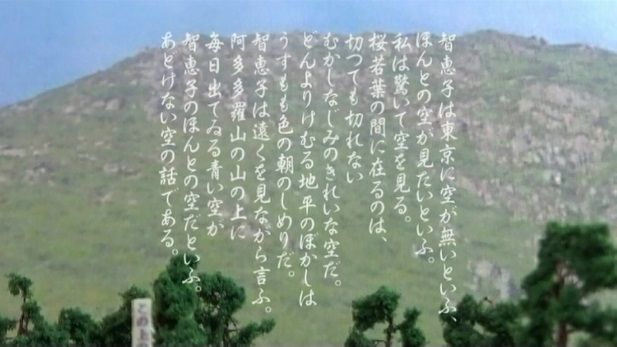 智恵子は東京に空が無いといふ、
ほんとの空が見たいといふ。
私は驚いて空を見る。
桜若葉の間に在るのは、
切つても切れない
むかしなじみのきれいな空だ。
どんよりけむる地平のぼかしは
うすもも色の朝のしめりだ。
智恵子は遠くを見ながら言ふ。
阿多多羅山の山の上に
毎日出てゐる青い空が
智恵子のほんとの空だといふ。
あどけない空の話である。
この上